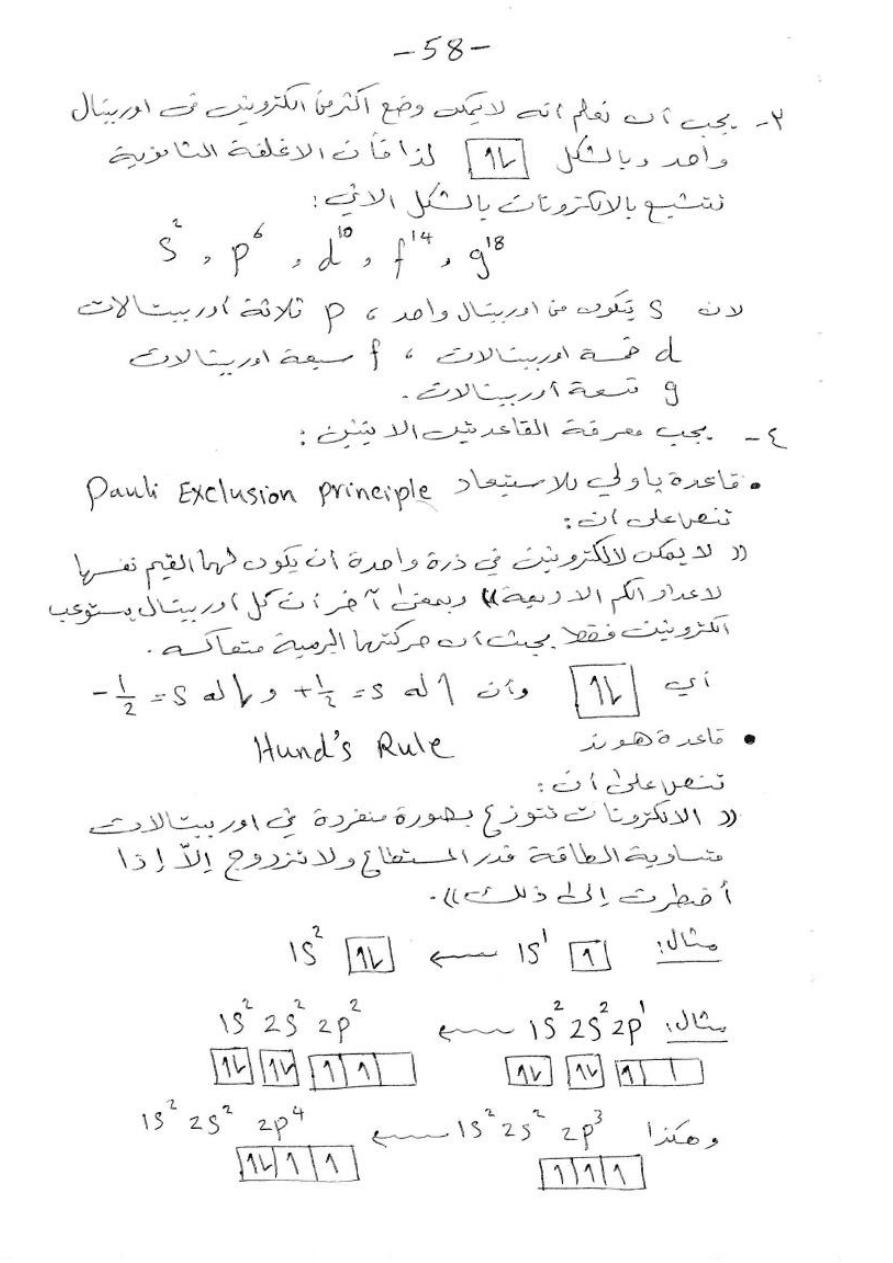 -58-
٣- يجب أن نعلم أنه لا يمكن وضع أكثر من الكترونين في اوربيتال
واحد وبالشكل [↿⇂] لذا فأن الاغلفة الثانوية
تتشبع بالالكترونات بالشكل الاتي:
S², p⁶, d¹⁰, f¹⁴, g¹⁸
لان S يتكون من اوربيتال واحد، p ثلاثة أوربيتالات
d خمسة اوربيتالات، f سبعة اوربيتالات
g تسعة أوربيتالات.
٤- يجب معرفة القاعدتين الاتيتين:
• قاعدة باولي للاستبعاد Pauli Exclusion principle
تنص على أن:
(( لا يمكن لالكترونين في ذرة واحدة أن يكون لهما القيم نفسها
لاعداد الكم الاربعة)) وبمعنى آخر أن كل أوربيتال يستوعب
الكترونين فقط بحيث أن حركتهما البرمية متعاكسه.
أي [↿⇂] وأن ↿ له S = +1/2 و ⇂ له S = -1/2
• قاعدة هوند Hund's Rule
تنص على أن:
(( الالكترونات تتوزع بصورة منفردة في اوربيتالات
متساوية الطاقة قدر المستطاع ولا تزدوج إلاّ إذا
أضطرت إلى ذلك)).
مثال: [↿] 1S¹ ← [↿⇂] 1S²
مثال: 1S² 2S² 2p¹ ← 1S² 2S² 2p²
[↿⇂] [↿⇂] [↿| | ] [↿⇂] [↿⇂] [↿|↿| ]
وهكذا 1S² 2S² 2p³ ← 1S² 2S² 2p⁴
[↿|↿|↿] [↿⇂|↿|↿]